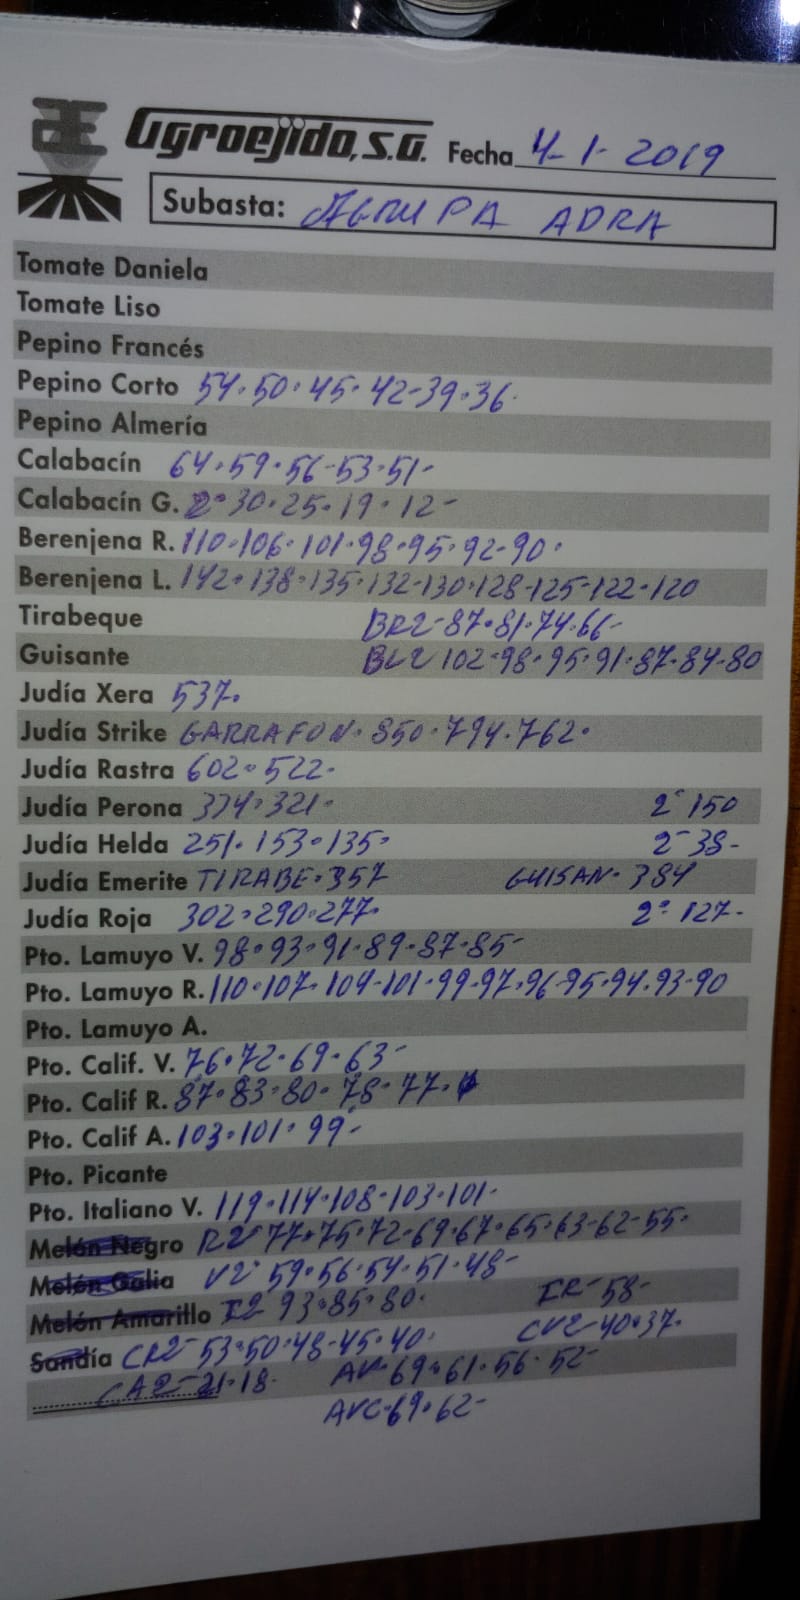 Agroejido, S.A. Fecha 4-1-2019
Subasta: AGRUPA ADRA
Tomate Daniela
Tomate Liso
Pepino Francés
Pepino Corto 54·50·45·42-39·36·
Pepino Almería
Calabacín 64·59·56-53·51-
Calabacín G. 2ª 30·25·19·12-
Berenjena R. 110·106·101·98·95·92-90·
Berenjena L. 142·138·135·132-130·128-125-122-120
Tirabeque BR2-87·81·74·66-
Guisante BL2 102-98·95·91·87·84·80
Judía Xera 537·
Judía Strike GARRAFON·850·794·762·
Judía Rastra 602·522-
Judía Perona 374·321- 2ª 150
Judía Helda 251·153·135- 2ª 38-
Judía Emerite TIRABE·357 GUISAN·384
Judía Roja 302·290·277· 2ª 127-
Pto. Lamuyo V. 98·93·91·89·87·85-
Pto. Lamuyo R. 110·107-104-101-99-97·96-95-94·93-90
Pto. Lamuyo A.
Pto. Calif. V. 76·72-69·63-
Pto. Calif R. 87·83·80·78·77·
Pto. Calif A. 103·101·99-
Pto. Picante
Pto. Italiano V. 119·114·108-103·101-
Melón Negro R2-77·75·72-69·67·65·63-62-55-
Melón Galia V2-59·56·54·51·48-
Melón Amarillo I2 93·85·80· IR-58-
Sandía CR2-53·50·48-45·40· CV2-40·37·
CA2-21·18· AV·69·61·56·52-
AVC·69·62-